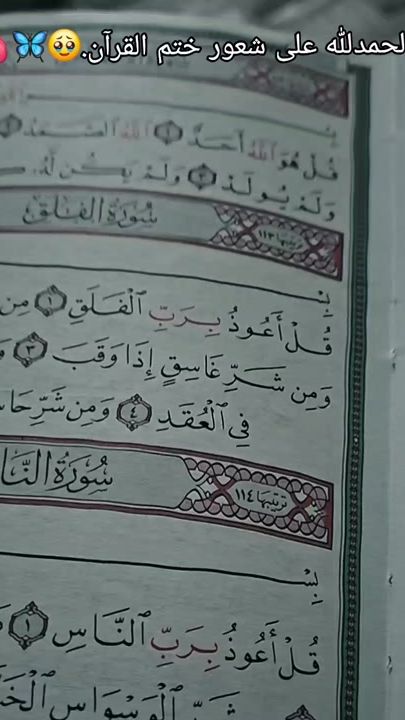 لحمدلله على شعور ختم القرآن.🥹🦋
قُلْ هُوَ ٱللَّهُ أَحَدٌ ١ ٱللَّهُ ٱلصَّمَدُ ٢
وَلَمْ يُولَدْ ٣ وَلَمْ يَكُن لَّهُۥ
سُورَةُ الفَلَقِ ترتيبها ١١٣
بِسْ
قُلْ أَعُوذُ بِرَبِّ ٱلْفَلَقِ ١ مِن
وَمِن شَرِّ غَاسِقٍ إِذَا وَقَبَ ٣
فِي ٱلْعُقَدِ ٤ وَمِن شَرِّ حَا
سُورَةُ النَّا ترتيبها ١١٤
بِسْ
قُلْ أَعُوذُ بِرَبِّ ٱلنَّاسِ ١
شَرِّ ٱلْوَسْوَاسِ ٱلْخَ